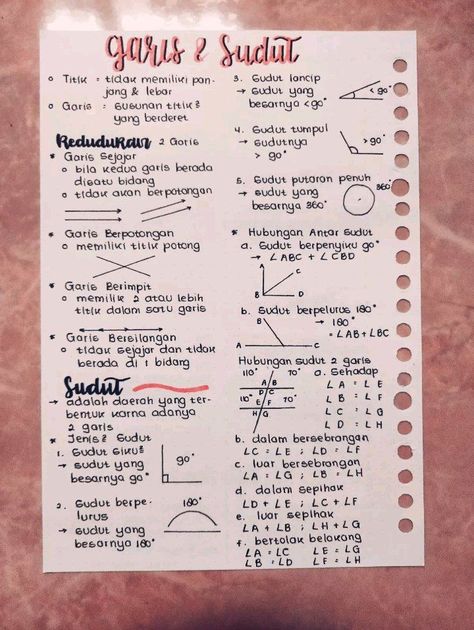 garis & Sudut
o Titik = tidak memiliki pan-
jang & lebar
o Garis = susunan titik²
yang berderet
Kedudukan 2 Garis
* Garis Sejajar
o bila kedua garis berada
disatu bidang
o tidak akan berpotongan
* Garis Berpotongan
o memiliki titik potong
* Garis Berimpit
o memilik 2 atau lebih
titik dalam satu garis
* Garis Bersilangan
o tidak sejajar dan tidak
berada di 1 bidang
Sudut
→ adalah daerah yang ter-
bentuk karna adanya
2 garis
* Jenis² Sudut
1. Sudut siku²
→ sudut yang
besarnya 90°
90°
2. Sudut berpe-
lurus
→ sudut yang
besarnya 180°
180°
3. Sudut lancip
→ sudut yang
besarnya <90°
< 90°
4. Sudut tumpul
→ sudutnya
> 90°
> 90°
5. Sudut putaran penuh
→ sudut yang
besarnya 360°
360°
* Hubungan Antar Sudut
a. Sudut berpenyiku 90°
→ ∠ABC + ∠CBD
A
C
B D
b. Sudut berpelurus 180°
B → 180°
= ∠AB + ∠BC
A C
Hubungan sudut 2 garis
110° 70° a. Sehadap
A B
D C
110° E F 70°
H G
∠A = ∠E
∠B = ∠F
∠C = ∠G
∠D = ∠H
b. dalam bersebrangan
∠C = ∠E ; ∠D = ∠F
c. luar bersebrangan
∠A = ∠G ; ∠B = ∠H
d. dalam sepihak
∠D + ∠E ; ∠C + ∠F
e. luar sepihak
∠A + ∠B ; ∠H + ∠G
f. bertolak belakang
∠A = ∠C ∠E = ∠G
∠B = ∠D ∠F = ∠H